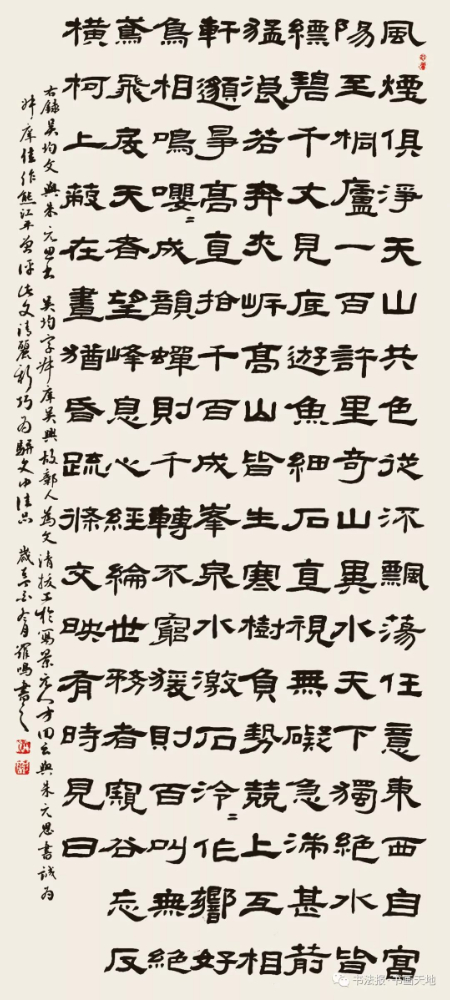 風煙俱淨天山共色從流飄蕩任意東西自富
陽至桐廬一百許里奇山異水天下獨絕水皆
縹碧千丈見底遊魚細石直視無礙急湍甚箭
猛浪若奔夾岸高山皆生寒樹負勢競上互相
軒邈爭高直指千百成峯泉水激石泠〻作響好
鳥相鳴嚶〻成韻蟬則千轉不窮猨則百叫無絕
鳶飛戾天者望峰息心經綸世務者窺谷忘反
橫柯上蔽在晝猶昏疏條交映有時見日
右錄吳均文與朱元思書 吳均字叔庠吳興故鄣人為文清拔工於寫景 與朱元思書誠為
叔庠佳作熊江平曾評此文清麗新巧為駢文中佳品 歲 羅鳴書之
书法报·书画天地